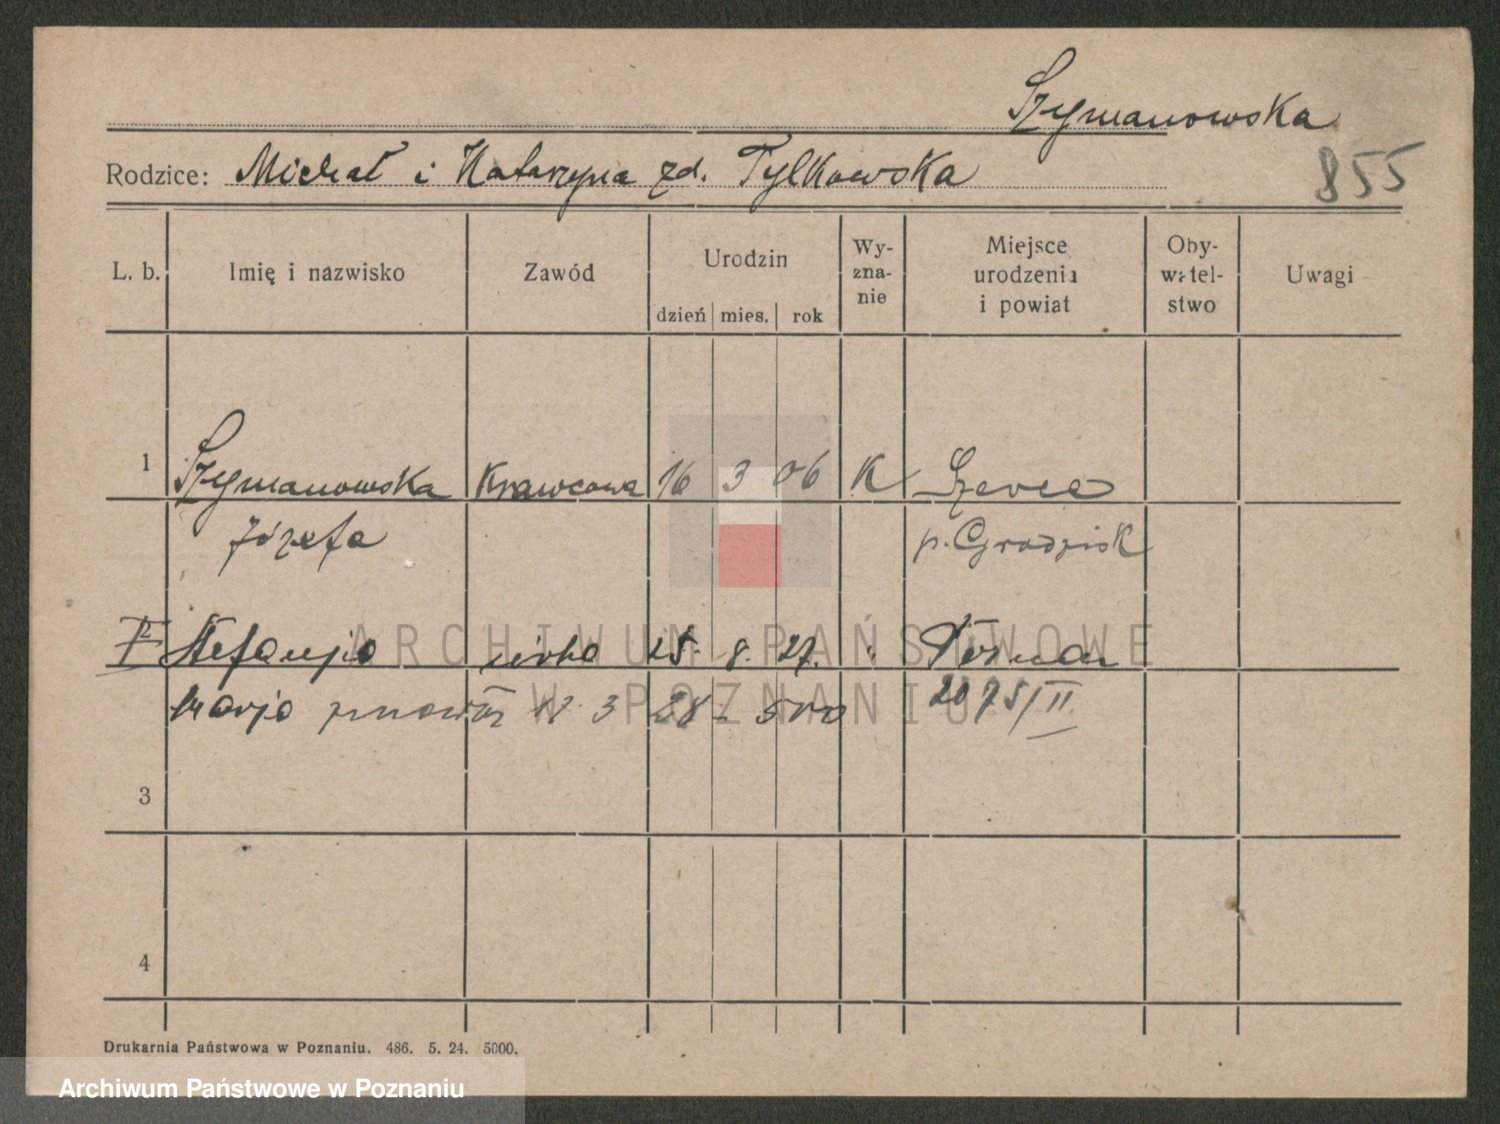 Szymanowska
855
Rodzice: Michał i Katarzyna zd. Tylkowska
L. b. Imię i nazwisko Zawód Urodzin dzień mies. rok Wy-zna-nie Miejsce urodzenia i powiat Oby-watel-stwo Uwagi
1 Szymanowska Krawcowa 16 3 06 K
Józefa p. Grodzisk
Stefanja córka 25. 8. 27. " Poznań
Marja 2075/II
3
4
Drukarnia Państwowa w Poznaniu. 486. 5. 24. 5000.
ARCHIWUM PAŃSTWOWE
W POZNANIU
Archiwum Państwowe w Poznaniu